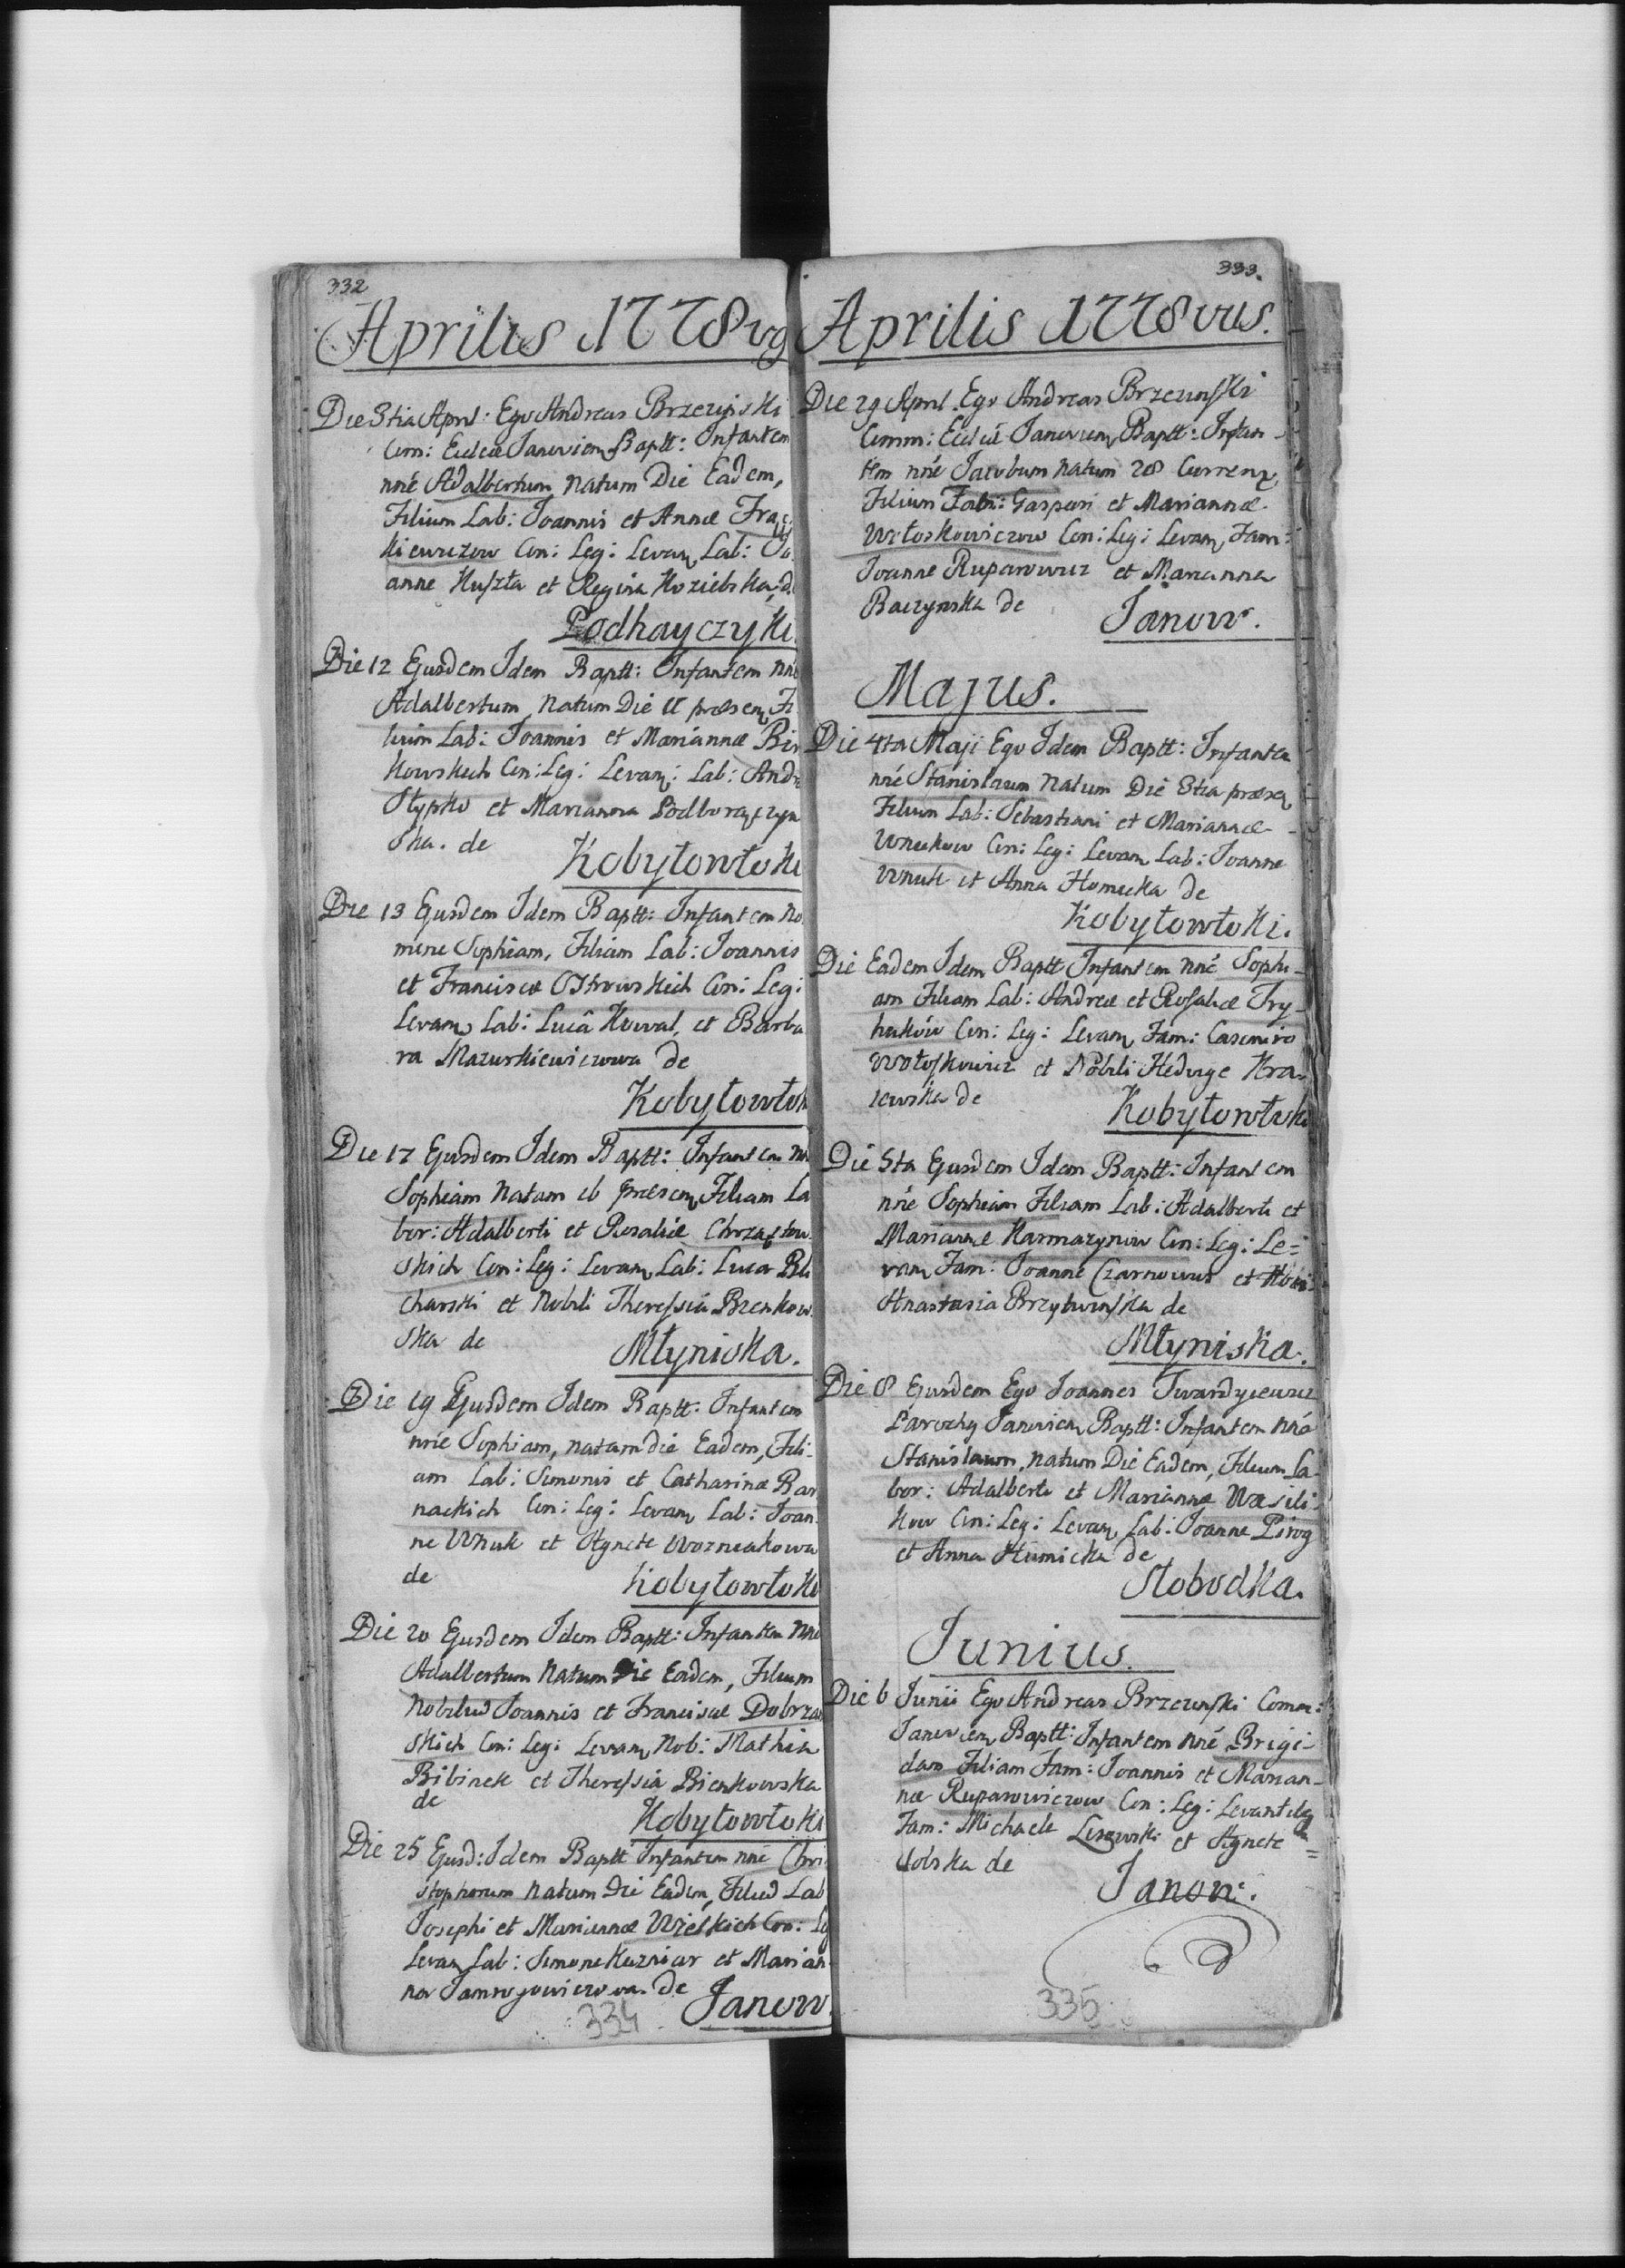 332
Aprilis 1778vg
Die 3tia Apri: Ego Andreas Brzezinski
Com: Ecclae Janovien Baptt: Infantem
nne Adalbertum Natum Die Eadem,
Filium Lab: Joannis et Annae Frąc
kiewiczow Con: Leg: Levan Lab: Jo
anne Huszła et Regina Kozielska d
Podhayczyki
Die 12 Ejusdem Idem Baptt: Infantem nne
Adalbertum Natum Die 11 praesen Fi
lium Lab: Joannis et Mariannae
kowskich Con: Leg: Levan: Lab: Andr
Słypko et Marianna Podborączyn
ska. de
Kobyłowłoki
Die 13 Ejusdem Idem Baptt: Infantem No
mine Sophiam, Filiam Lab: Joannis
et Franciscae Ostrowskich Con: Leg:
Levan Lab: Lucâ Kowal, et Barba
ra Mazurkiewiczowa de
Kobyłowłok
Die 17 Ejusdem Idem Baptt: Infantem nn
Sophiam Natam 16 praesen Filiam La
bor: Adalberti et Rosaliae Chrząstow
skich Con: Leg: Levan Lab: Luca Bli
charski et Nobili Theressia Bienkow
ska de
Młyniska.
Die 19 Ejusdem Idem Baptt: Infantem
nne Sophiam, natam die Eadem, Fili
am Lab: Simonis et Catharinae Bar
nackich Con: Leg: Levan Lab: Joan
ne Wnuk et Agnete Wozniakowa
de
Kobyłowłoki
Die 20 Ejusdem Idem Baptt: Infantem nne
Adalbertum Natum Die Eadem, Filium
Nobilium Joannis et Franciscae Dobrzań
skich Con: Leg: Levan Nob: Mathia
Bibinek et Theressia Bienkowska
de
Kobyłowłoki
Die 25 Ejusd: Idem Baptt Infantem nne Chri
stophorum Natum Die Eadem, Filium Lab
Josephi et Mariannae Wielkich Con: Leg
Levan Lab: Simone Kuzniar et Marian
na de
Janow.
334
333.
Aprilis 1778vus.
Die 29 April Ego Andreas Brzezinski
Comm: Ecclae Janovien Baptt: Infan
tem nne Jacobum Natum 28 Curren
Filium Fam: Gaspari et Mariannae
Wołoskowiczow Con: Leg: Levan Fam:
Joanne Ruparowicz et Marianna
Baczynska de
Janow.
Majus.
Die 4ta Maji Ego Idem Baptt: Infantem
nne Stanislaum Natum Die 3tia praesen
Filium Lab: Sebastiani et Mariannae
Wnukow Con: Leg: Levan Lab: Joanne
Wnuk et Anna Homicka de
Kobyłowłoki.
Die Eadem Idem Baptt Infantem nne Sophi
am Filiam Lab: Andreae et Rosaliae Try
hukow Con: Leg: Levan Fam: Casimiro
Wołoskowicz et Nobili Hedvige Kra
iewska de
Kobyłowłoki
Die 5ta Ejusdem Idem Baptt: Infantem
nne Sophiam Filiam Lab: Adalberti et
Mariannae Karmazynow Con: Leg: Le=
van Fam: Joanne Czarnowicz et
Anastasia de
Młyniska.
Die 8 Ejusdem Ego Joannes Twardyiewicz
Parochg Janovien Baptt: Infantem nne
Stanislaum, natum Die Eadem, Filium La
bor: Adalberti et Mariannae Wasili
kow Con: Leg: Levan Lab: Joanne Pirog
et Anna Humicka de
Słobodka.
Junius.
Die 6 Junii Ego Andreas Brzezinski Comm:
Janovien Baptt: Infantem nne Brigi
dam Filiam Fam: Joannis et Marian
nae Ruparowiczow Con: Leg: Levantibg
Fam: Michaele Liszewski et Agnete
Uolska de
Janow.
335